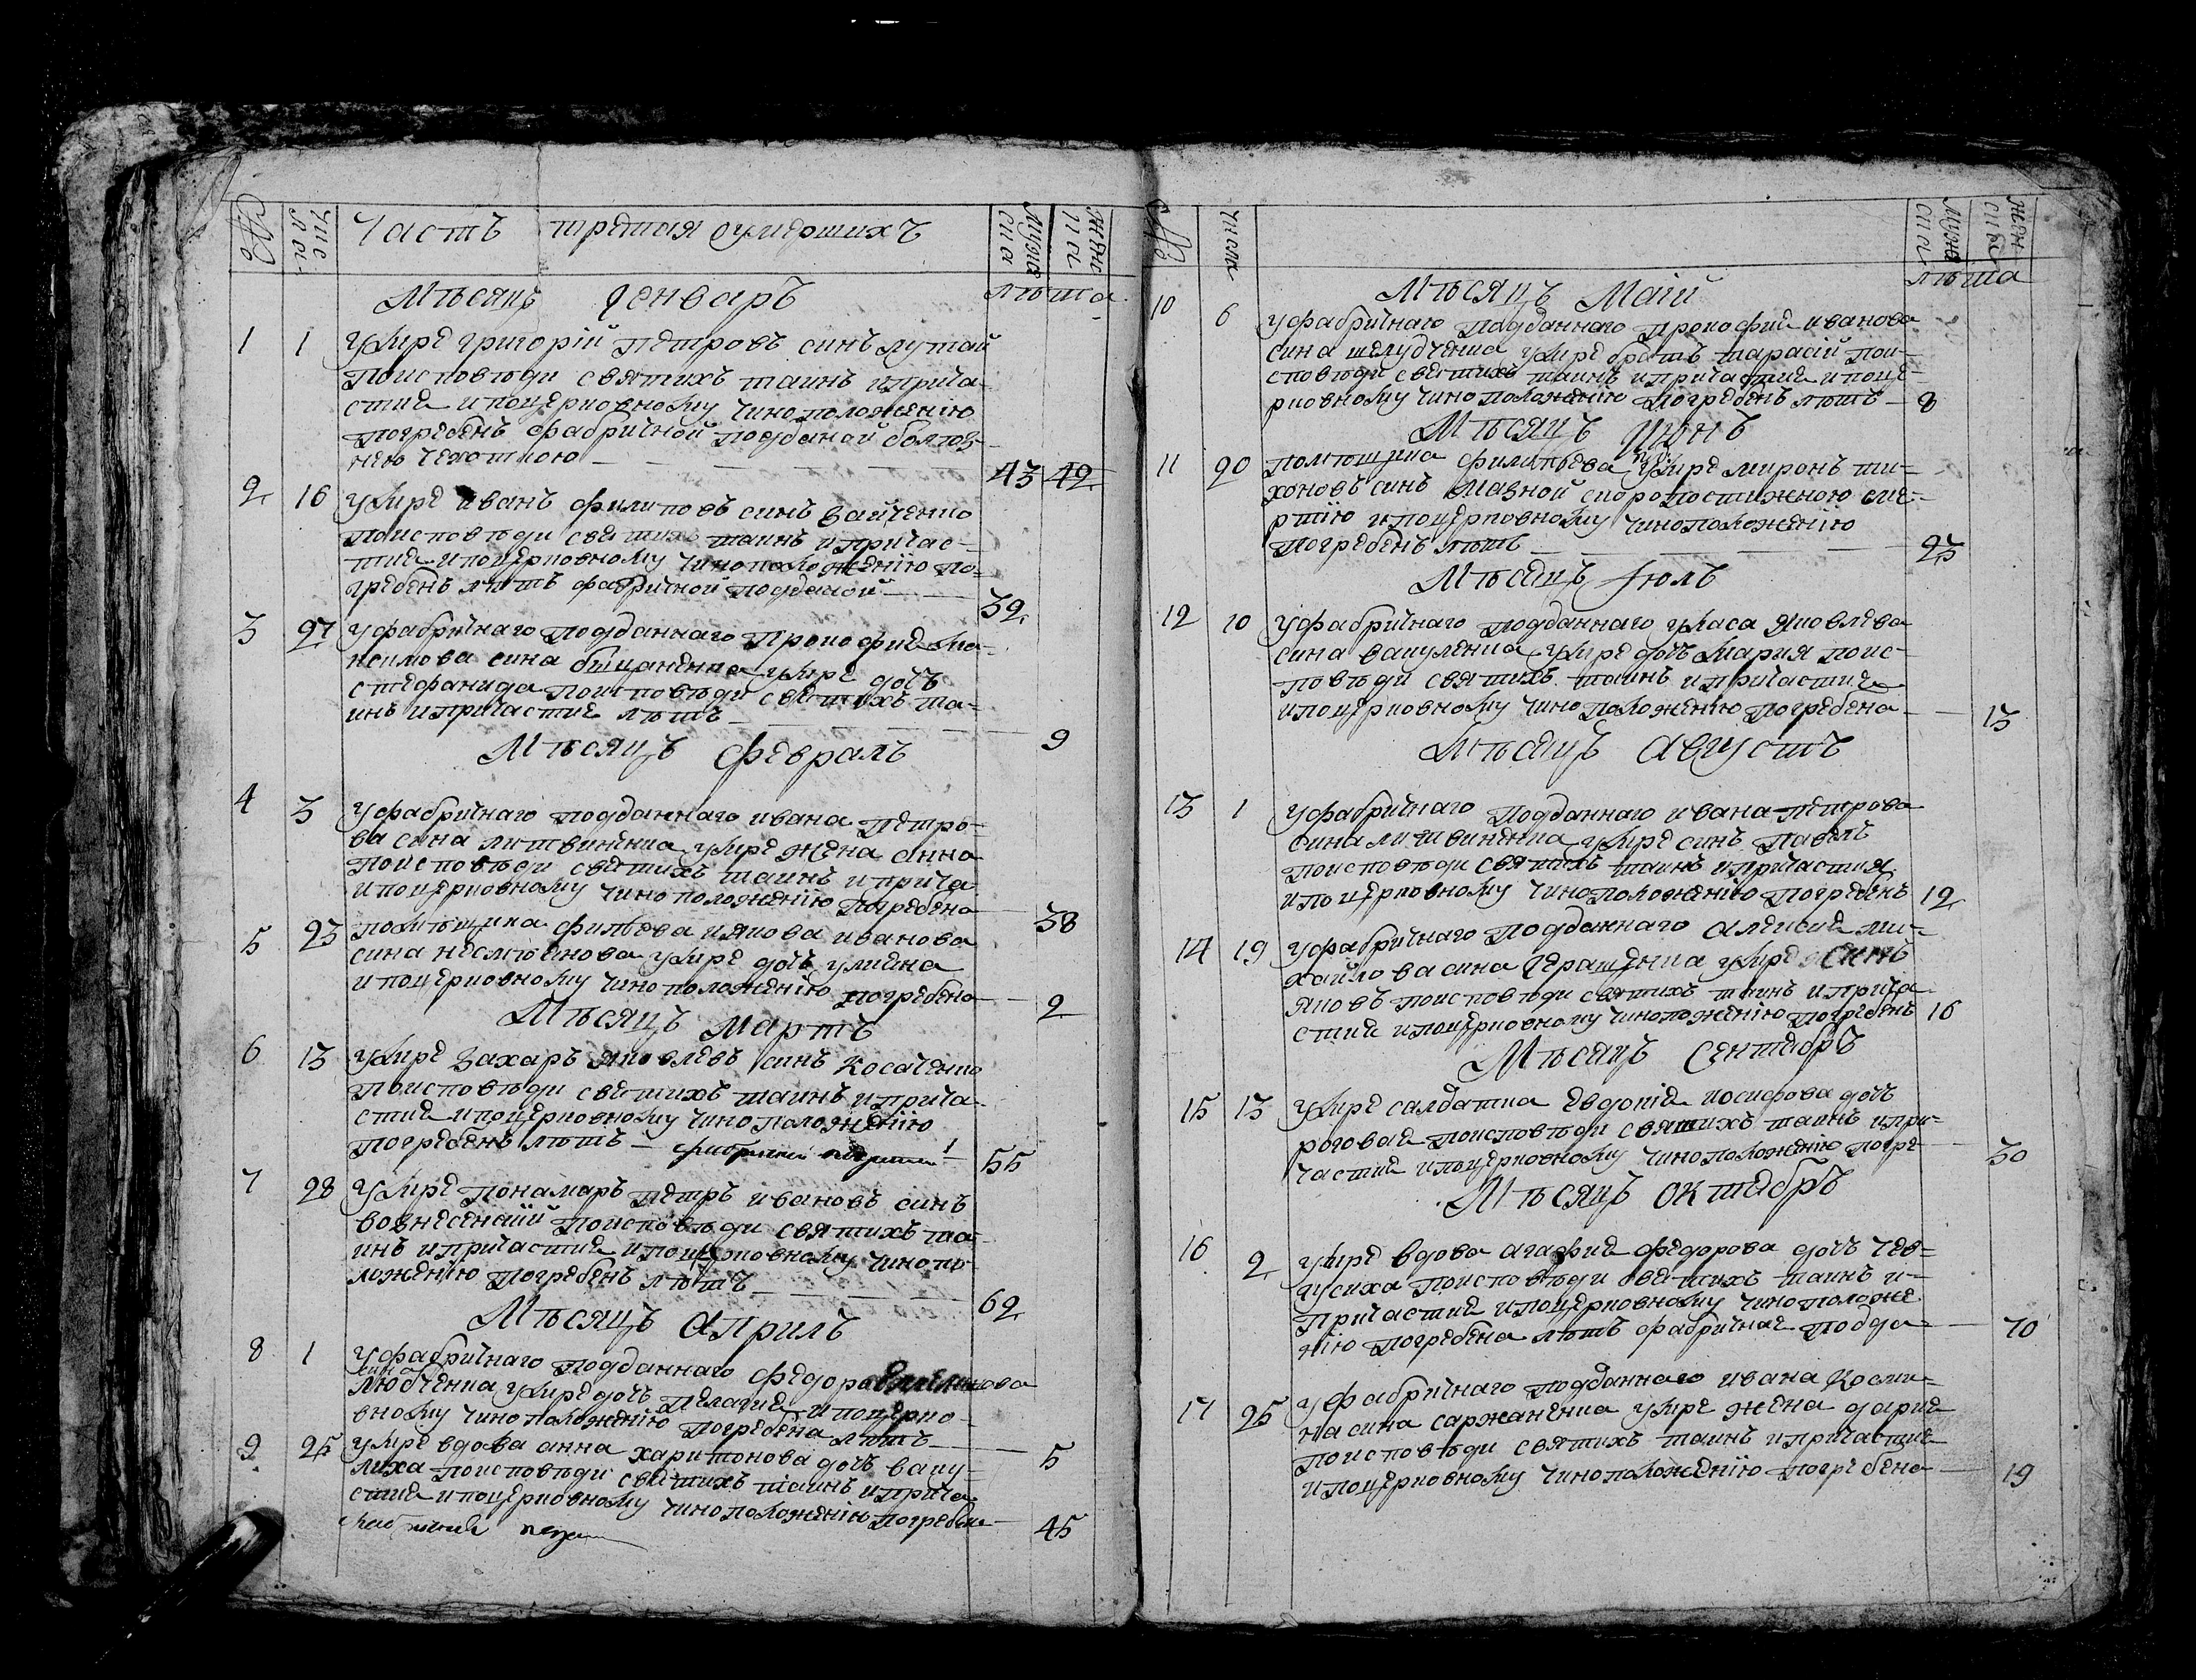 №
Чис
ла
Часть третая оумершихъ
Муже
ска
Женс
ка
Мѣсяцъ Генваръ
лѣта
1 1 Умре григорій Петровъ синъ лутай
по исповѣди святихъ таинъ и прича-
стия и поцерковному чиноположению
погребенъ фабричной подданой болѣз-
нею чехоткою 43 42
2 16 Умре иванъ филиповъ синъ Зайченко
поисповѣди святихъ таинъ и причас-
тия и поцерковному чиноположению по-
гребенъ лѣтъ фабричной подданой 32
3 27 У фабричнаго подданнаго Прокофия Ма-
ксимова сина умре дочъ
стефанида поисповѣди святихъ та-
инъ и причастие лѣтъ 9
Мѣсяцъ Февралъ
4 3 У фабричнаго подданнаго ивана Петро-
ва сина литвиненка умре жена анна
поисповѣди святихъ таинъ и прича
и поцерковному чиноположению погребена 38
5 23 помѣщика филѣва иякова иванова
сина несмѣянова умре дочъ улияна
и поцерковному чиноположению погребена 2
Мѣсяцъ Мартъ
6 13 Умре Захаръ яковлевъ синъ Косаченко
поисповѣди святихъ таинъ и прича-
стия и поцерковному чиноположению
погребенъ лѣтъ 55
7 28 Умре Понамаръ Петръ ивановъ синъ
вознесенский поисповѣди святихъ та-
инъ и причастия и поцерковному чинопо-
ложению погребенъ лѣтъ 62
Мѣсяцъ Априлъ
8 1 У фабричнаго подданнаго Федора
любченка умре дочъ Пелагия и поцерко-
вному чиноположению погребена лѣтъ 5
9 25 Умре вдова анна харитонова дочъ ваку-
лиха поисповѣди святихъ таинъ и прича
стия и поцерковному чиноположению погребена 45
№
числа
Муже
ска
Жен
ска
лѣта
Мѣсяцъ Маій
10 6 У фабричнаго подданнаго Прокофия иванова
сина шелудченка умре братъ тарасій пои-
сповѣди святихъ таинъ и причастия и поце-
рковному чиноположению погребенъ лѣтъ 8
Мѣсяцъ Июнъ
11 20 помѣщика филипьева умре миронъ ти-
хоновъ синъ Мазной скоропостижною сме-
ртию и поцерковному чиноположению
погребенъ лѣтъ 23
Мѣсяцъ Июлъ
12 10 У фабричнаго подданнаго уласа яковлева
сина вакуленка умре дочъ Мария поис-
повѣди святихъ таинъ и причастия
и поцерковному чиноположению погребена 13
Мѣсяцъ Августъ
13 1 У фабричнаго подданнаго ивана Петрова
сина литвиненка умре синъ Павелъ
поисповѣди святихъ таинъ и причастия
и поцерковному чиноположению погребенъ 12
14 19 У фабричнаго подданнаго алексия ми-
хайлова сина Геращенка умре синъ
яковъ поисповѣди святихъ таинъ и прича
стия и поцерковному чиноположению погребенъ 16
Мѣсяцъ Сентябръ
15 13 Умре салдатка евдокия иосифова дочъ
роговая поисповѣди святихъ таинъ и при-
частия и поцерковному чиноположению погре 30
Мѣсяцъ Октябръ
16 2 Умре вдова агафия федорова дочъ чев-
гусиха поисповѣди святихъ таинъ и
причастия и поцерковному чиноположе
нию погребена лѣтъ фабричная подда 70
17 25 У фабричнаго подданнаго ивана Косми-
на сина саржаненка умре жена дария
поисповѣди святихъ таинъ и причастия
и поцерковному чиноположению погребена 19